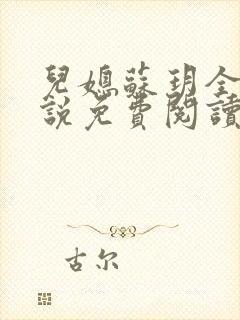 兒媳蘇玥全
說免費閱讀
古尔